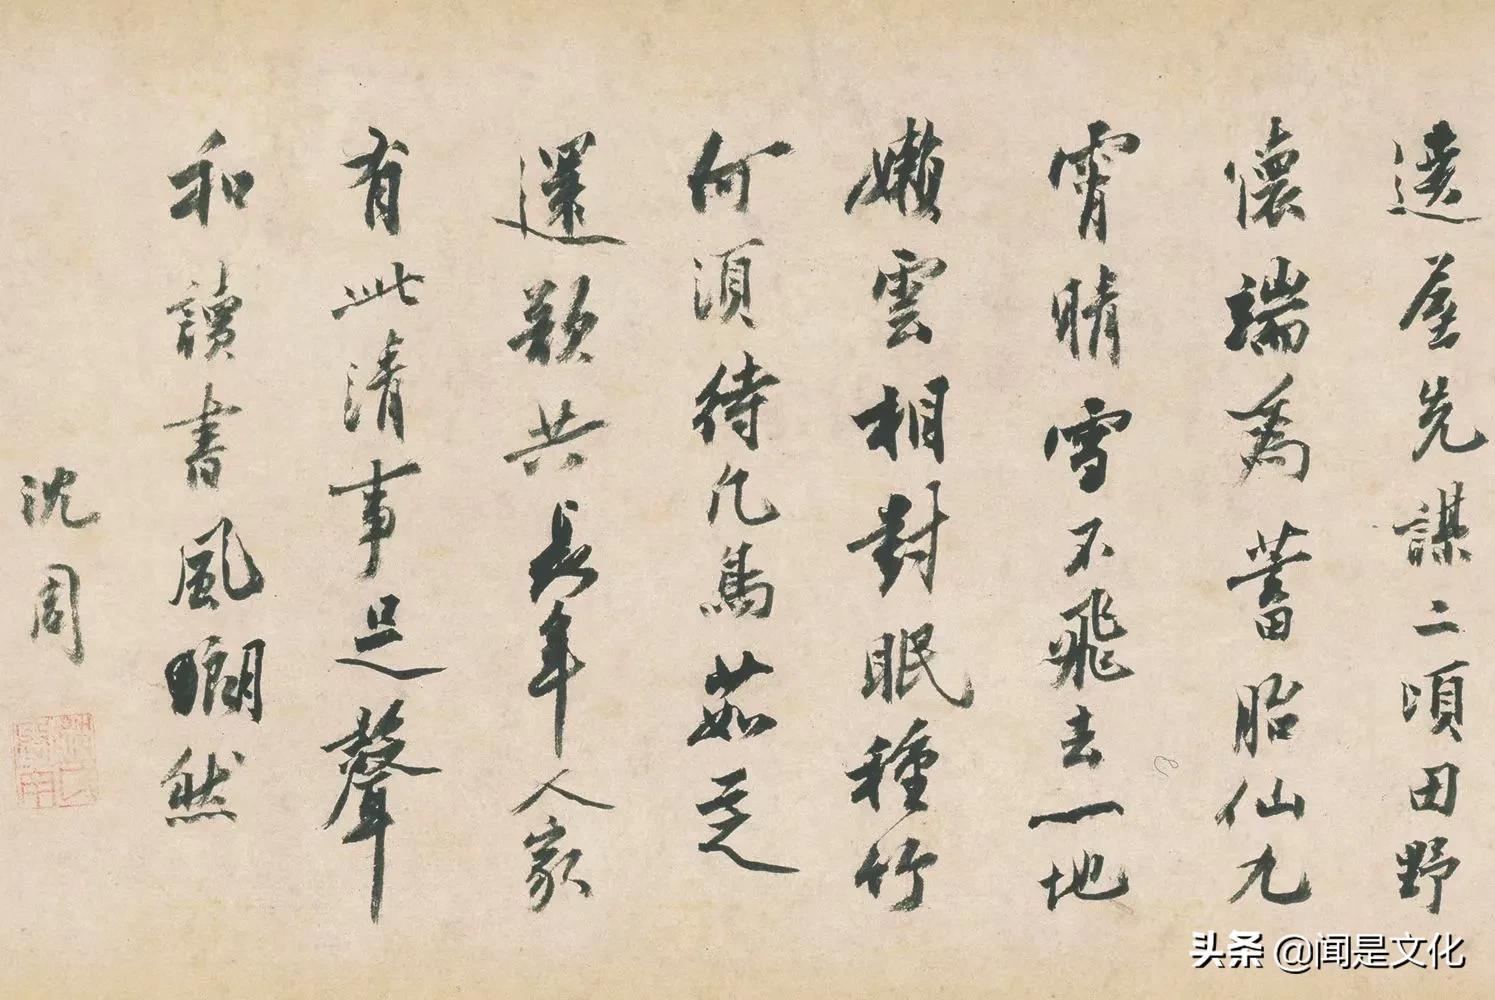 遶屋先謀二頃田野
懷端為蓄胎仙九
霄晴雪不飛去一地
嬾雲相對眠種竹
何須待凡鳥茹芝
還欲共長年人家
有此清事足聲
和讀書風朗然
沈周
头条 @闻是文化